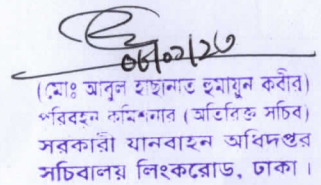 ০৮/০২/২৩
(মোঃ আবুল হাছানাত হুমায়ুন কবীর)
পরিবহন কমিশনার (অতিরিক্ত সচিব)
সরকারী যানবাহন অধিদপ্তর
সচিবালয় লিংকরোড, ঢাকা।